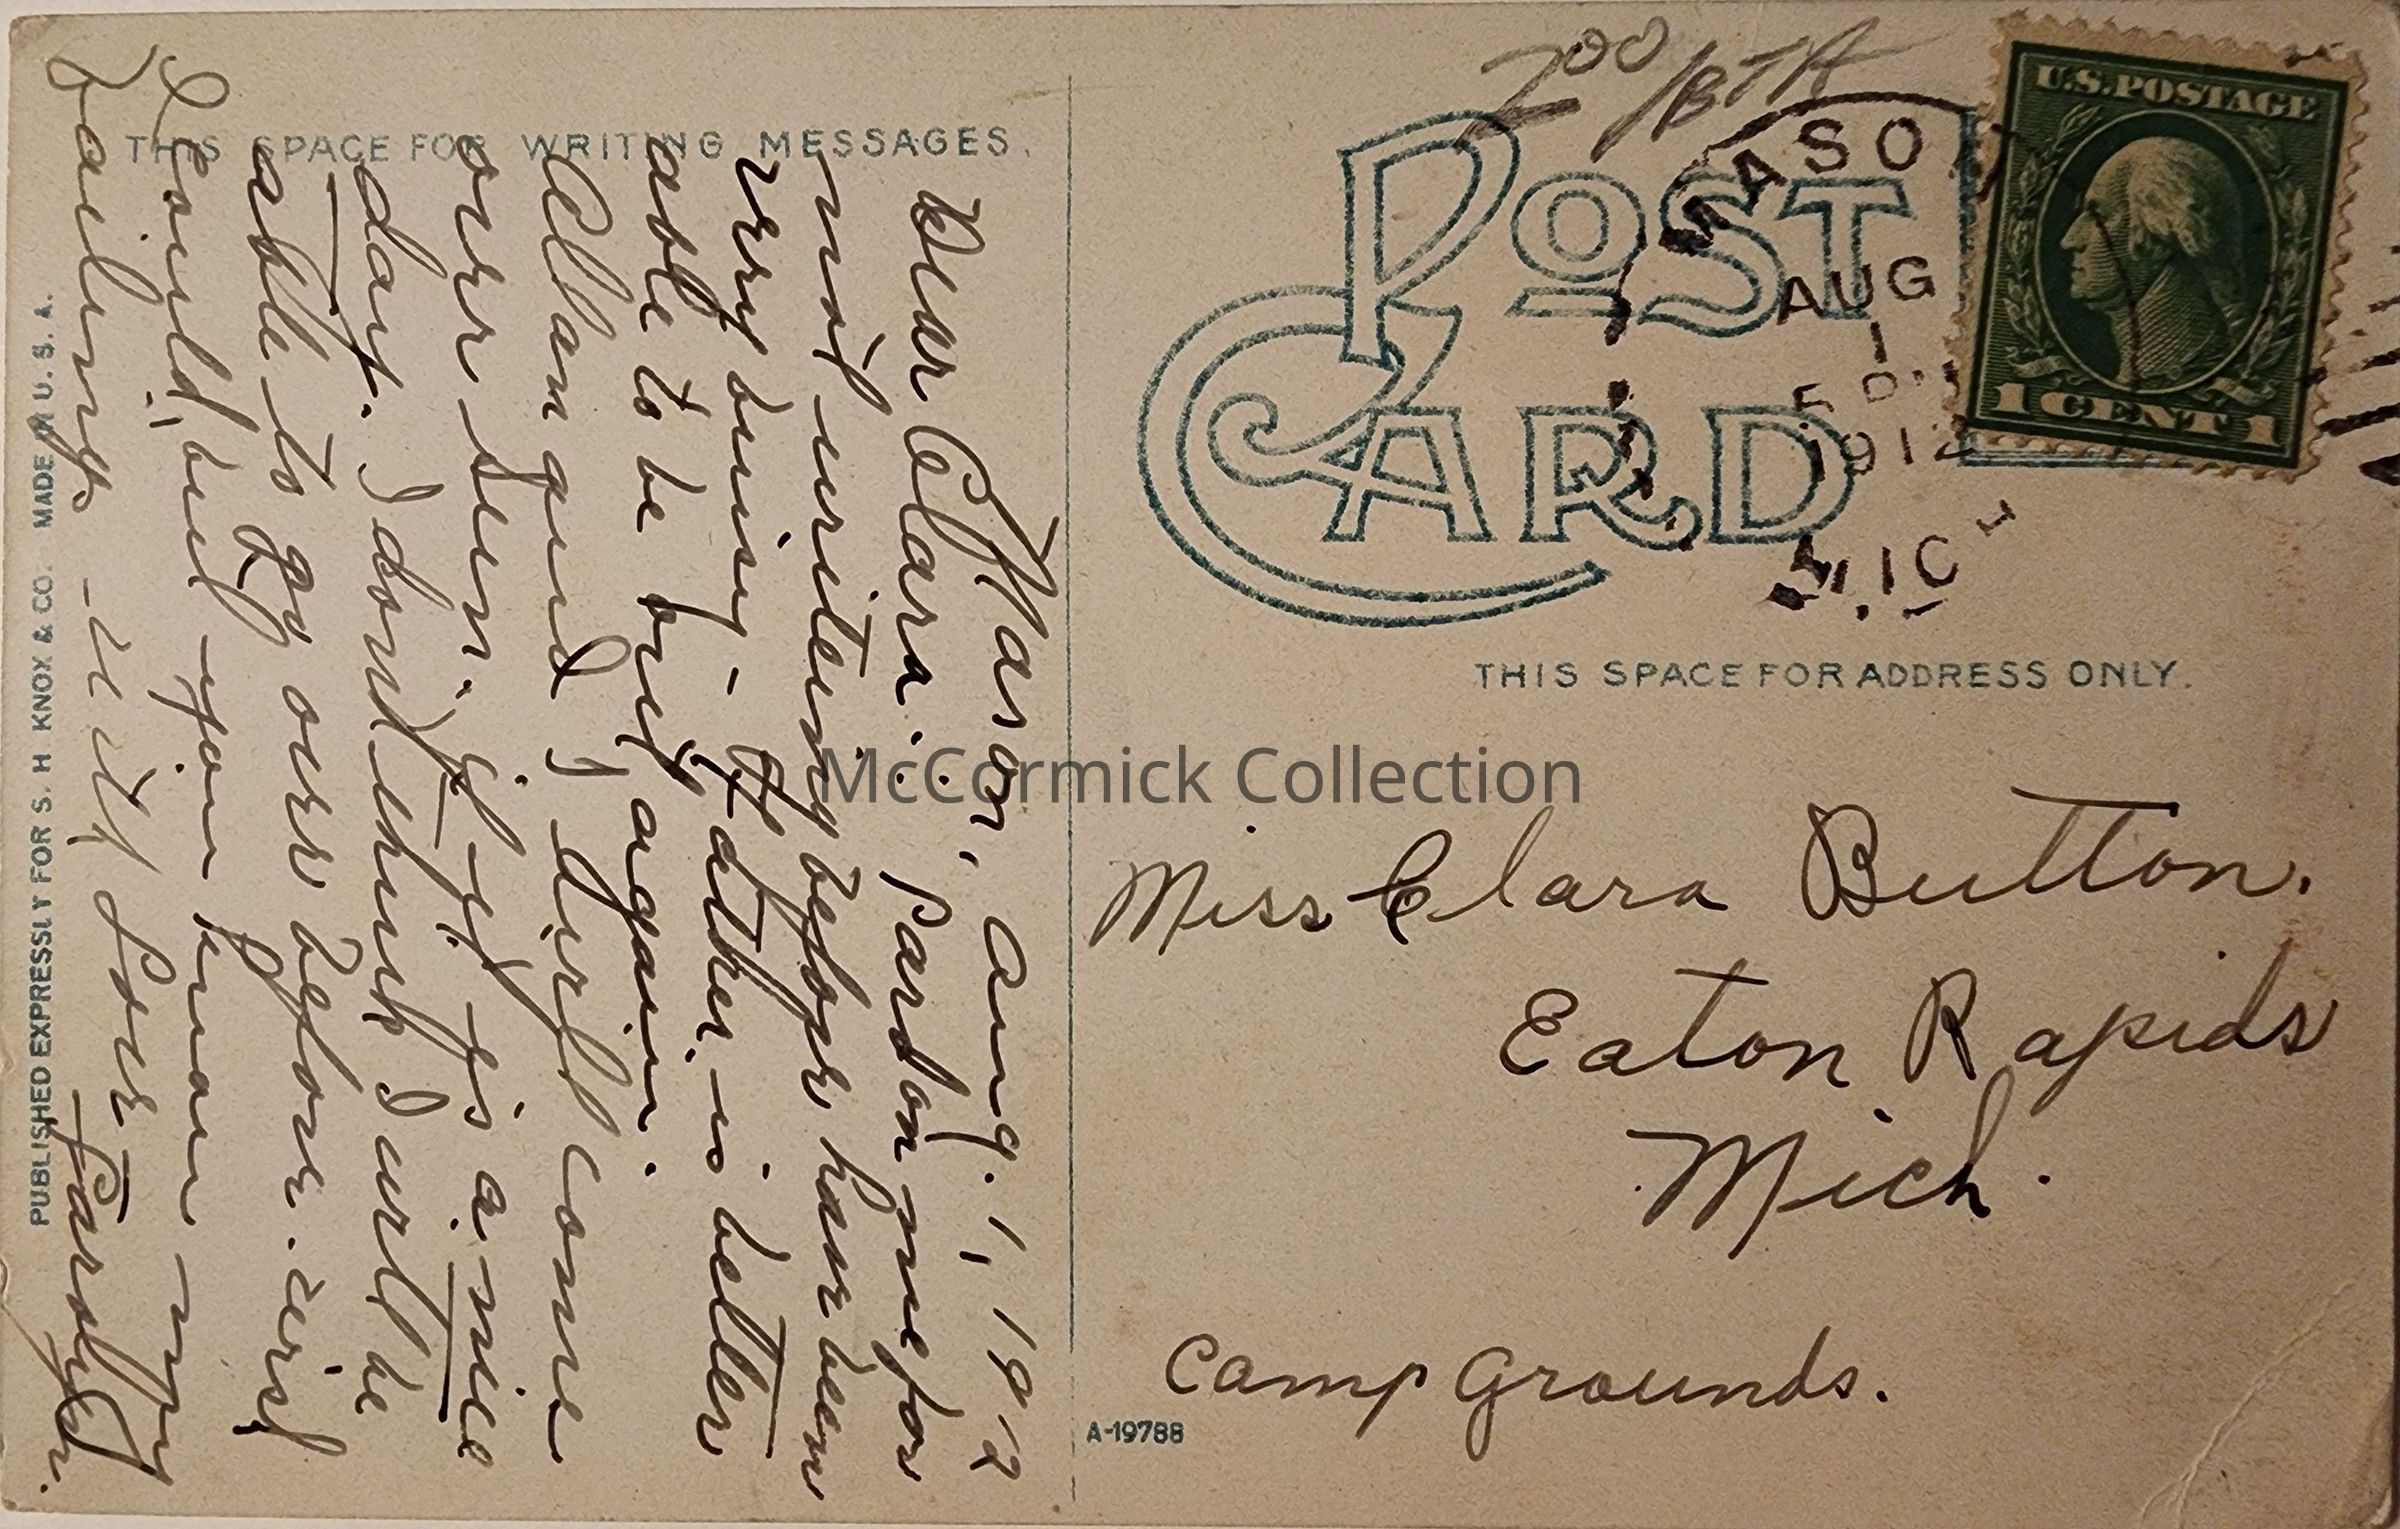 THIS SPACE FOR WRITING MESSAGES.
Mason, Aug. 1, 1912
Dear Clara:: Pardon me for
not writeing before have been
very busy - Father is better
able to be out again.
Allan and I will come
over Sun. if it is a nice
day. I dont think I will be
able to go over before. wish
I could but you know my
failings - with Love
PUBLISHED EXPRESSLY FOR S. H KNOX & CO. MADE IN U. S. A.
200/BTA
POST CARD
MASON
AUG
1
1912
MICH
U.S. POSTAGE
1 CENT 1
THIS SPACE FOR ADDRESS ONLY.
McCormick Collection
Miss Clara Button.
Eaton Rapids
Mich.
Camp Grounds.
A-19788